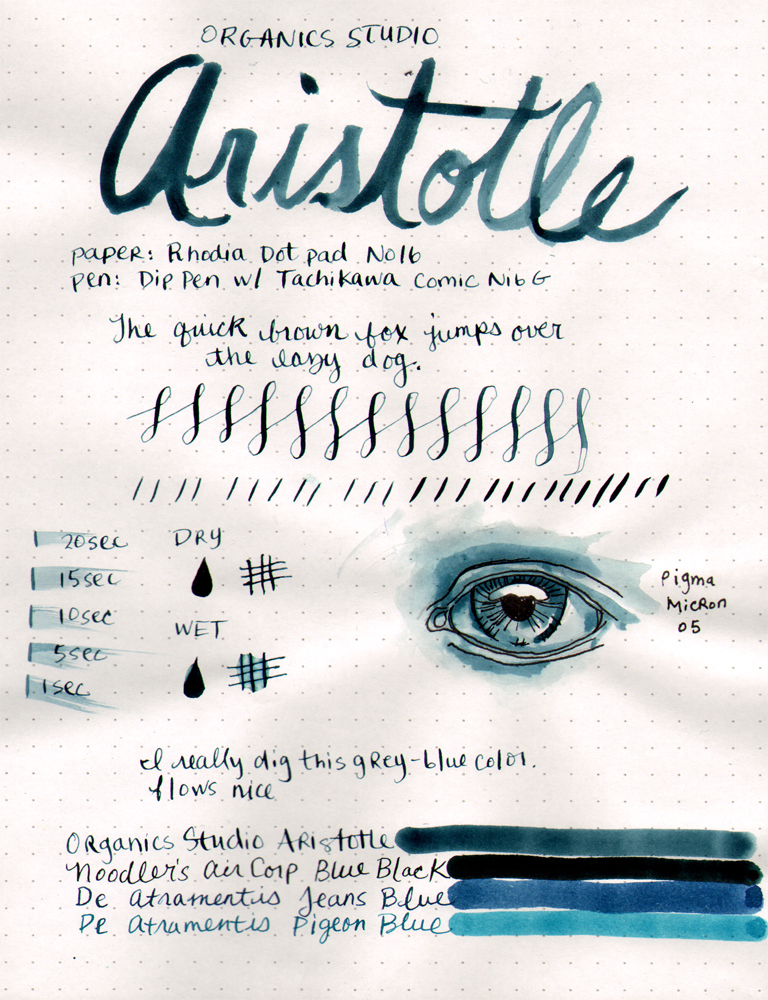 ORGANICS STUDIO
Aristotle
paper: Rhodia Dot pad No16
pen: Dip Pen w/ Tachikawa Comic Nib G
The quick brown fox jumps over
the lazy dog.
20sec
15sec
10sec
5sec
1sec
DRY
WET
Pigma
Micron
05
I really dig this grey-blue color.
flows nice
Organics Studio Aristotle
Noodler's Air Corp Blue Black
De Atramentis Jeans Blue
De Atramentis Pigeon Blue